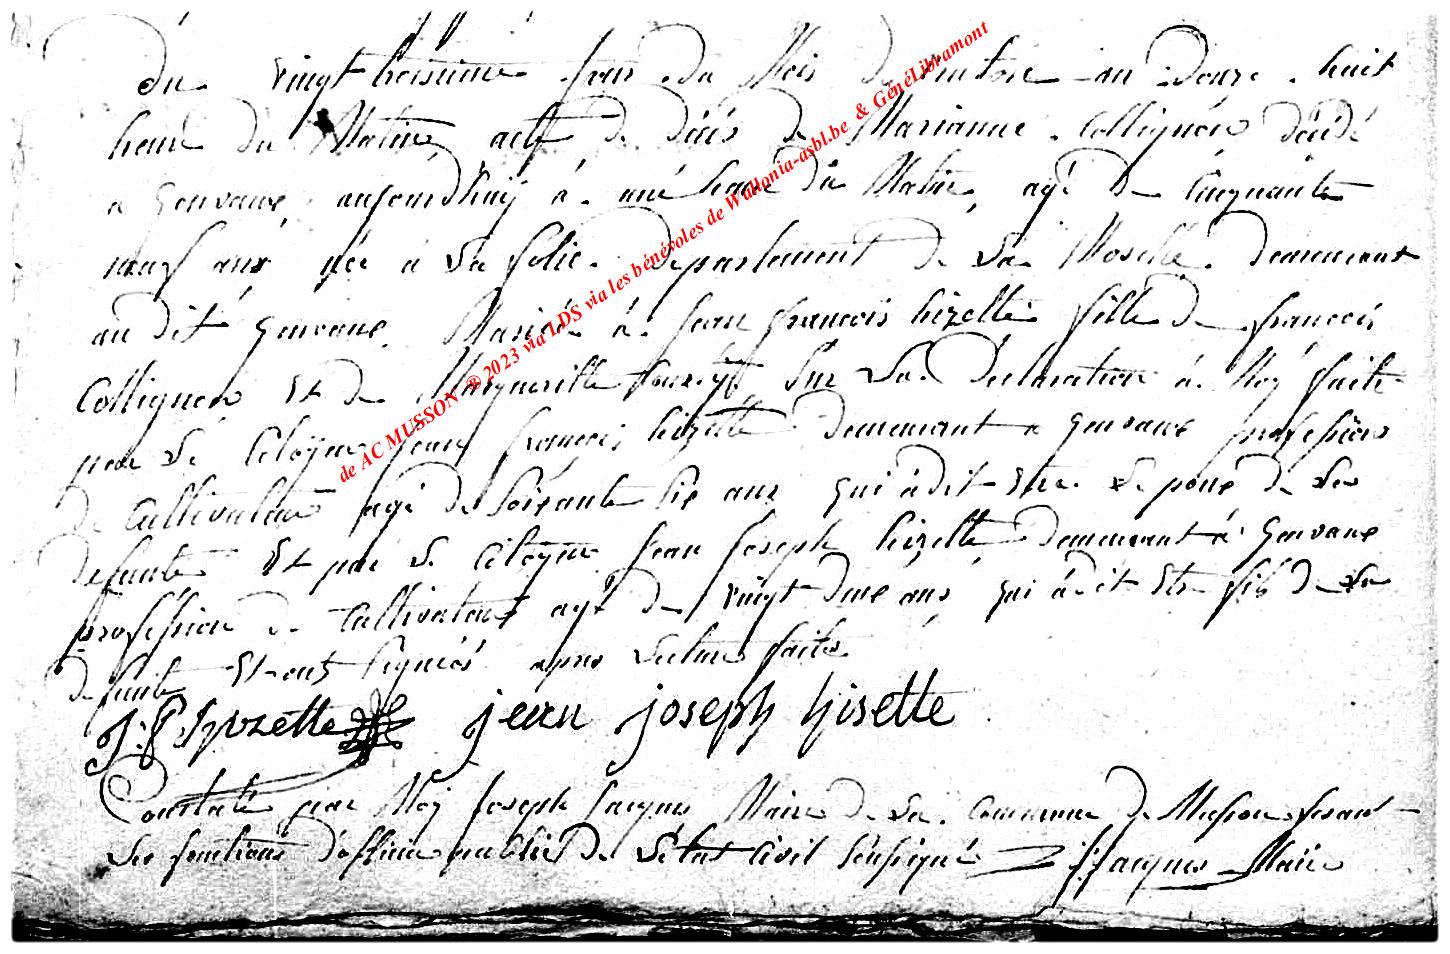 Du vingt troisieme jour du Mois de ventose an Douze huit
heure du Matin, acte de décés de Marianne Collignon décédé
a gonvaux aujourdhuÿ á une heure du Matin, agé de Cinquante
neuf ans née a La folie Departement de La Moselle Demeurant
au dit gonvaux Mariée á jean françois hizette fille de françois
Collignon Et de Marguerite Sur La Déclaration á Moÿ faite
par Le Citoÿen jean françois hizette Demeurant a gonvaux profession
de Cultivateur agé de Soixante Six ans qui a dit Etre Lepoux de La
defunte Et par Le Citoÿen jean joseph hizette Demeurant á gonvaux
profession de Cultivateur agé de vingt deux ans qui á dit Etre fils de La
defunte Et ont Signés apres Lecture faite
J: f hyzette jean joseph hisette
Constaté par Moÿ joseph jacques Maire de La Commune de Musson fesant
Les fonctions d'officier public de L'état Civil Soussigné J: Jacques Maire
de AC MUSSON ® 2023 via LDS via les bénévoles de Wallonia-asbl.be & GénéLibramont